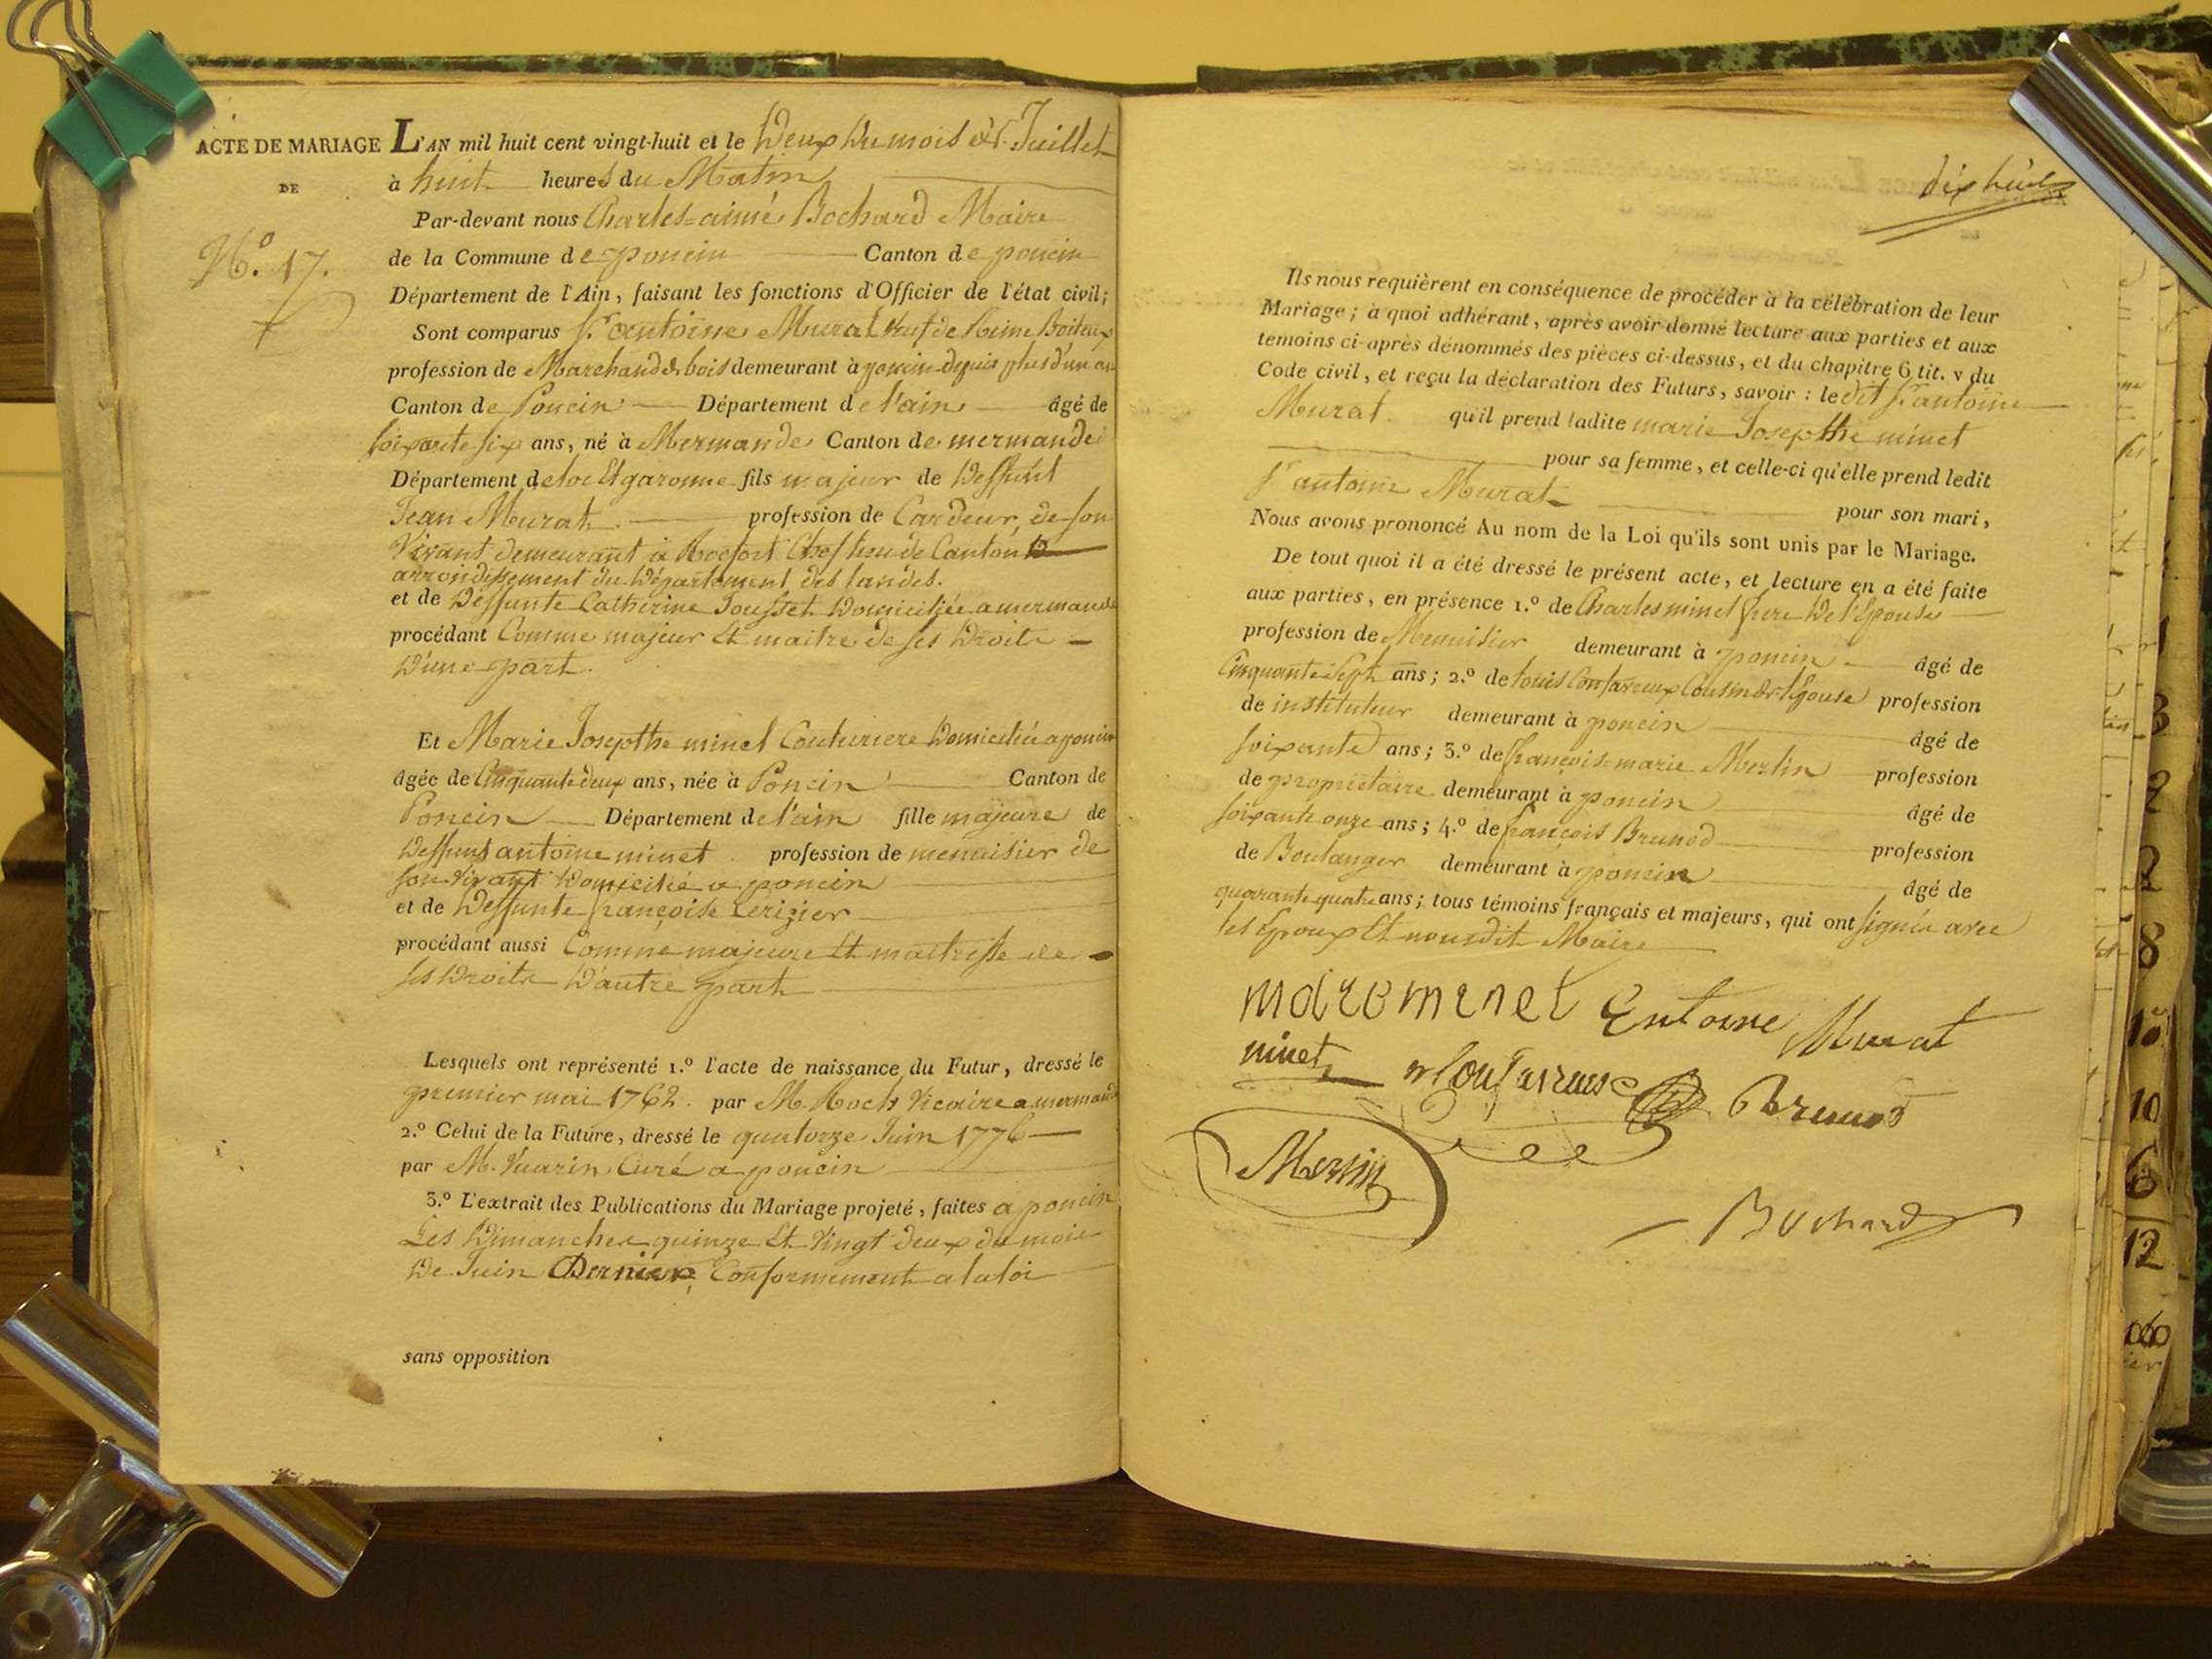 ACTE DE MARIAGE
DE
N.o 17.
L'AN mil huit cent vingt-huit et le Deux Du mois de Juillet
à huit heures du Matin
Par-devant nous Charles=aimé Bochard Maire
de la Commune de poncin Canton de poncin
Département de l'Ain, faisant les fonctions d'Officier de l'état civil;
Sont comparus Sr antoine Murat Boiteux
profession de Marchand de bois demeurant à poncin depuis plus d'un an
Canton de Poncin Département de l'ain âgé de
soixante six ans, né à Mermande Canton de mermande
Département de lot Et garonne fils majeur de Deffunt
Jean Murat profession de Cardeur, de son
Vivant demeurant à Rocfort Chef lieu de Canton
arrondissement du Département des landes.
et de Deffunte Catherine Jousset Domiciliée a mermande
procédant Comme majeur Et maitre de ses Droits
D'une part.
Et Marie Josepthe minet Couturiere Domiciliée a poncin
âgée de Cinquante deux ans, née à Poncin Canton de
Poncin Département de l'ain fille majeure de
Deffunt antoine minet profession de menuisier de
son Vivant Domicilié a poncin
et de Deffunte françoise Cerizier
procédant aussi Comme majeure Et maitresse de
ses Droits D'autre part
Lesquels ont représenté 1.o l'acte de naissance du Futur, dressé le
premier mai 1762. par M. Roch Vicaire a mermande
2.o Celui de la Future, dressé le quatorze Juin 1776
par M. Vuarin Curé a poncin
3.o L'extrait des Publications du Mariage projeté, faites a poncin
Les Dimanches quinze Et Vingt deux du mois
De Juin Dernier, Conformement a la loi
sans opposition
dix huit
Ils nous requièrent en conséquence de procéder à la célébration de leur
Mariage; à quoi adhérant, après avoir donné lecture aux parties et aux
temoins ci-après dénommés des pièces ci-dessus, et du chapitre 6 tit. v du
Code civil, et reçu la déclaration des Futurs, savoir: ledit Sr antoine
Murat qu'il prend ladite marie Josepthe minet
pour sa femme, et celle-ci qu'elle prend ledit
Sr antoine Murat pour son mari,
Nous avons prononcé Au nom de la Loi qu'ils sont unis par le Mariage.
De tout quoi il a été dressé le présent acte, et lecture en a été faite
aux parties, en présence 1.o de Charles minet frere De l'Epouse
profession de Menuisier demeurant à poncin âgé de
Cinquante Sept ans; 2.o de louis Confavreux Cousin de l'Epouse profession
de instituteur demeurant à poncin âgé de
soixante ans; 3.o de françois=marie Merlin profession
de propriétaire demeurant à poncin âgé de
soixante onze ans; 4.o de françois Brunod profession
de Boulanger demeurant à poncin âgé de
quarante quatre ans; tous témoins français et majeurs, qui ont signés avec
les Epoux Et nousdit Maire
minet Entoine Murat
minet Brunod
Merlin
Bochard
3
2
2
8
10
10
6
12